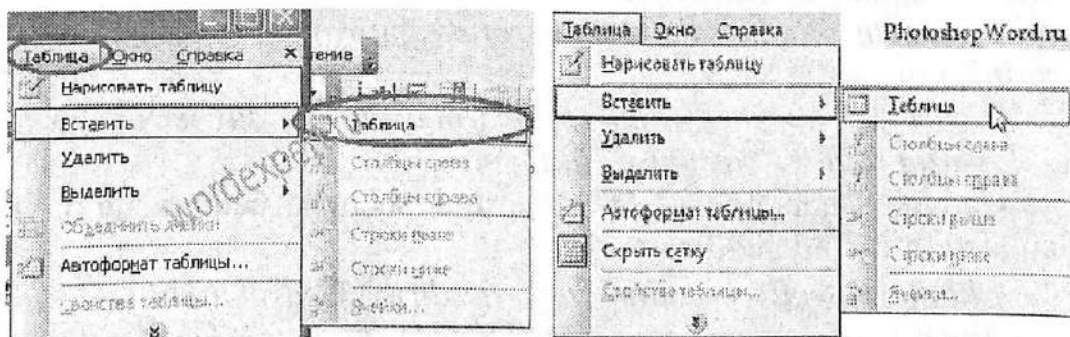 Таблица Окно Справка
Нарисовать таблицу
Вставить
Удалить
Выделить
Объединить ячейки
Автоформат таблицы...
Свойства таблицы...
тение
Таблица
Столбцы слева
Столбцы справа
Строки выше
Строки ниже
Ячейки...
Таблица Окно Справка
Нарисовать таблицу
Вставить
Удалить
Выделить
Автоформат таблицы...
Скрыть сетку
Свойства таблицы...
PhotoshopWord.ru
Таблица
Столбцы слева
Столбцы справа
Строки выше
Строки ниже
Ячейки...